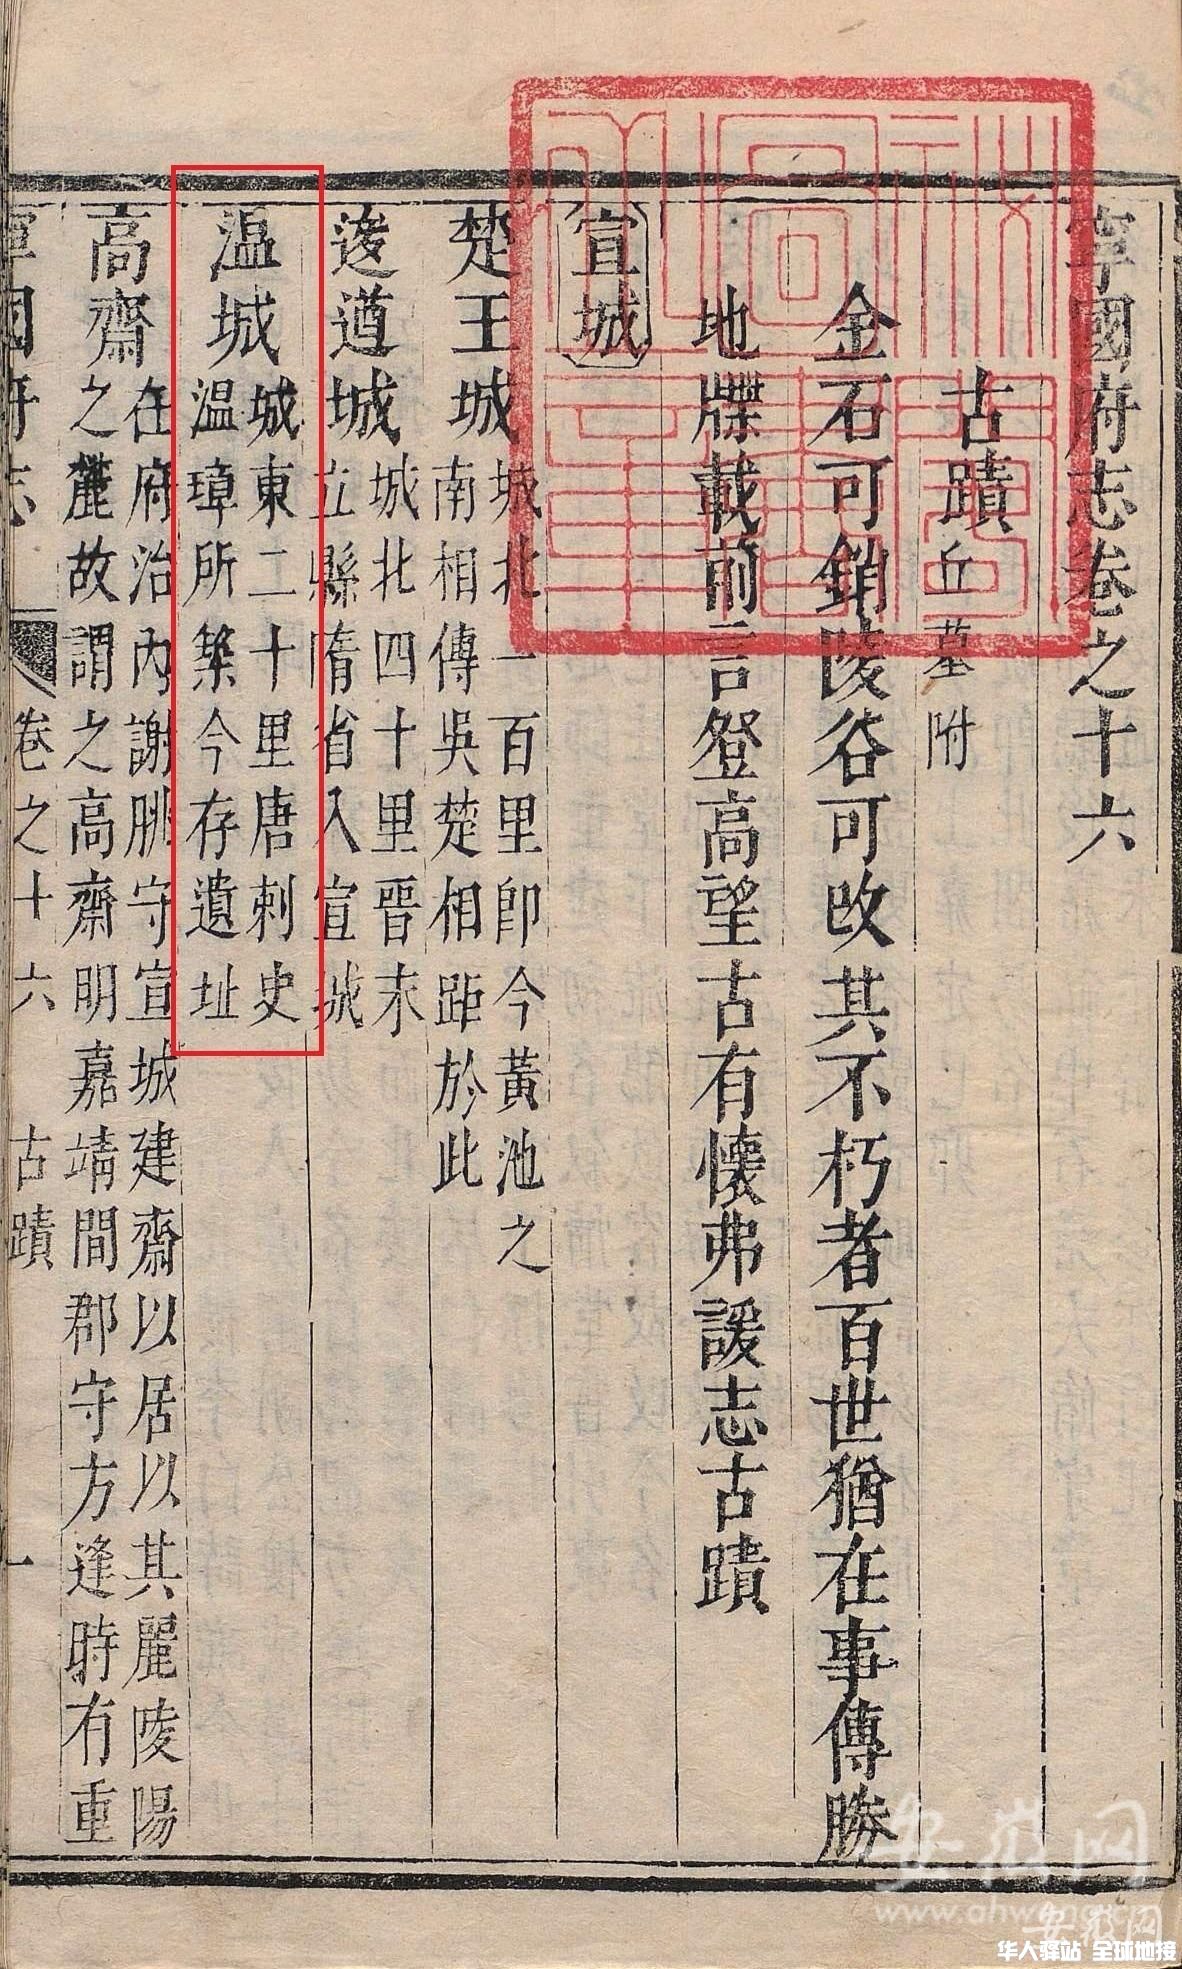 寧國府志卷之十六
古蹟丘墓附
金石可銷陵谷可改其不朽者百世猶在事傳勝
地牒載前言登高望古有懷弗諼志古蹟
宣城
楚王城
城北一百里即今黃池之
南相傳吳楚相距於此
逡遒城
城北四十里晉末
立縣隋省入宣城
温城
城東二十里唐刺史
温璋所築今存遺址
高齋
在府治內謝朓守宣城建齋以居以其麗陵陽
之麓故謂之高齋明嘉靖間郡守方逢時有重
寧國府志 卷之十六 古蹟 一
安徽网
www.ahwang.cn
安徽网
华人驿站 全球地接